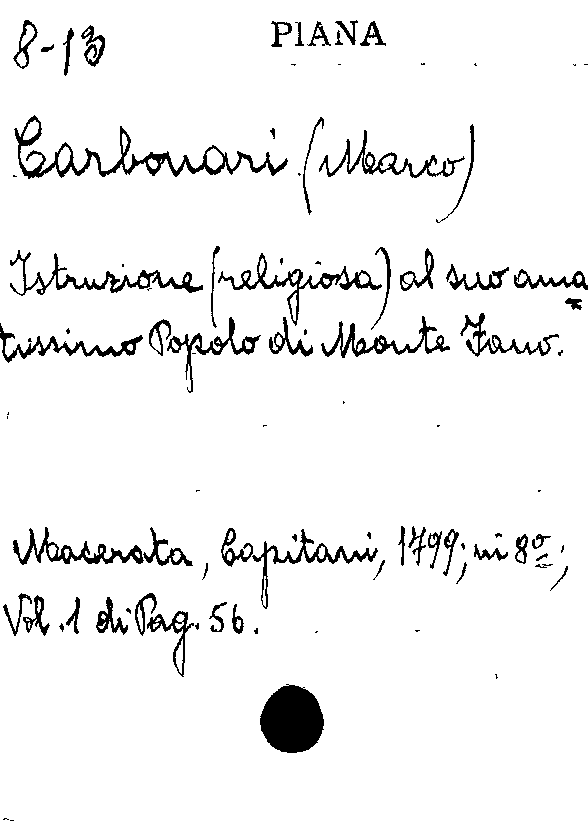 8-13 PIANA
Carbonari (Marco)
Istruzione (religiosa) al suo ama
tissimo Popolo di Monte Fano.
Macerata, Capitani, 1799; in 8º;
Vol. 1 di Pag. 56.